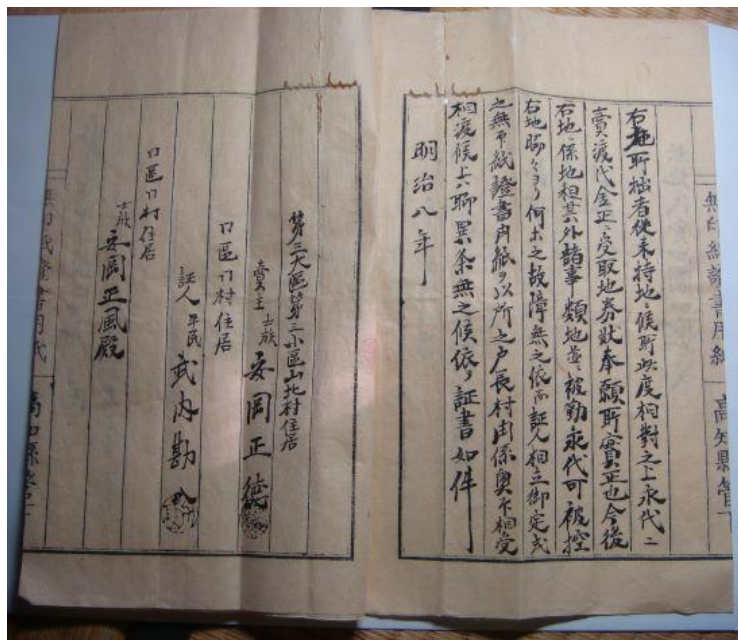 無印紙證書用紙
高知縣管下
右趣所拙者従来持地候所此度相對之上永代ニ
賣渡代金正ニ受取地券状奉願所實正也今後
右地ニ係地租其外諸事類地並ニ被勤永代可被控
右地所ニ何等之故障無之依而証人相立御定式
之無印紙證書用紙ヲ以所之戸長村用係奥書相受
相渡候上ハ聊異条無之候依テ証書如件
明治八年
第三大區第三小區山北村住居
賣主 士族 安岡正徳
口區口村住居
証人 平民 武内勘八
口區口村住居
士族 安岡正風殿
無印紙證書用紙
高知縣管下